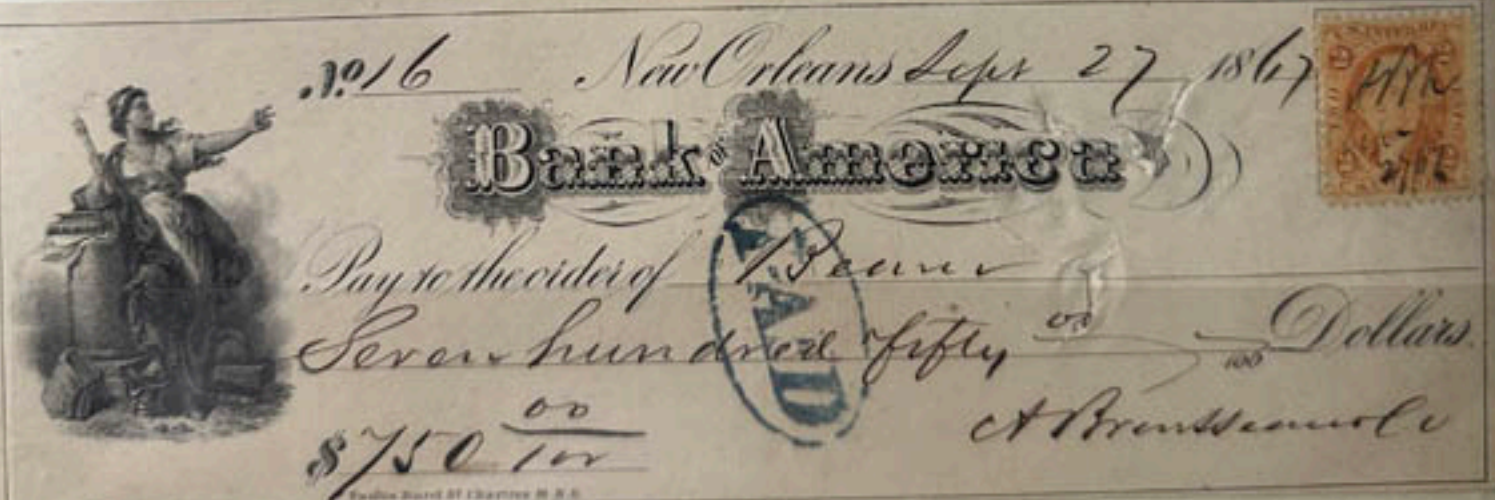 No. 16 New Orleans Sept 27 1867
Bank of America
Pay to the order of Bearer
Seven hundred fifty 00/100 Dollars.
$750 00/100
A Brousseau & Co
PAID